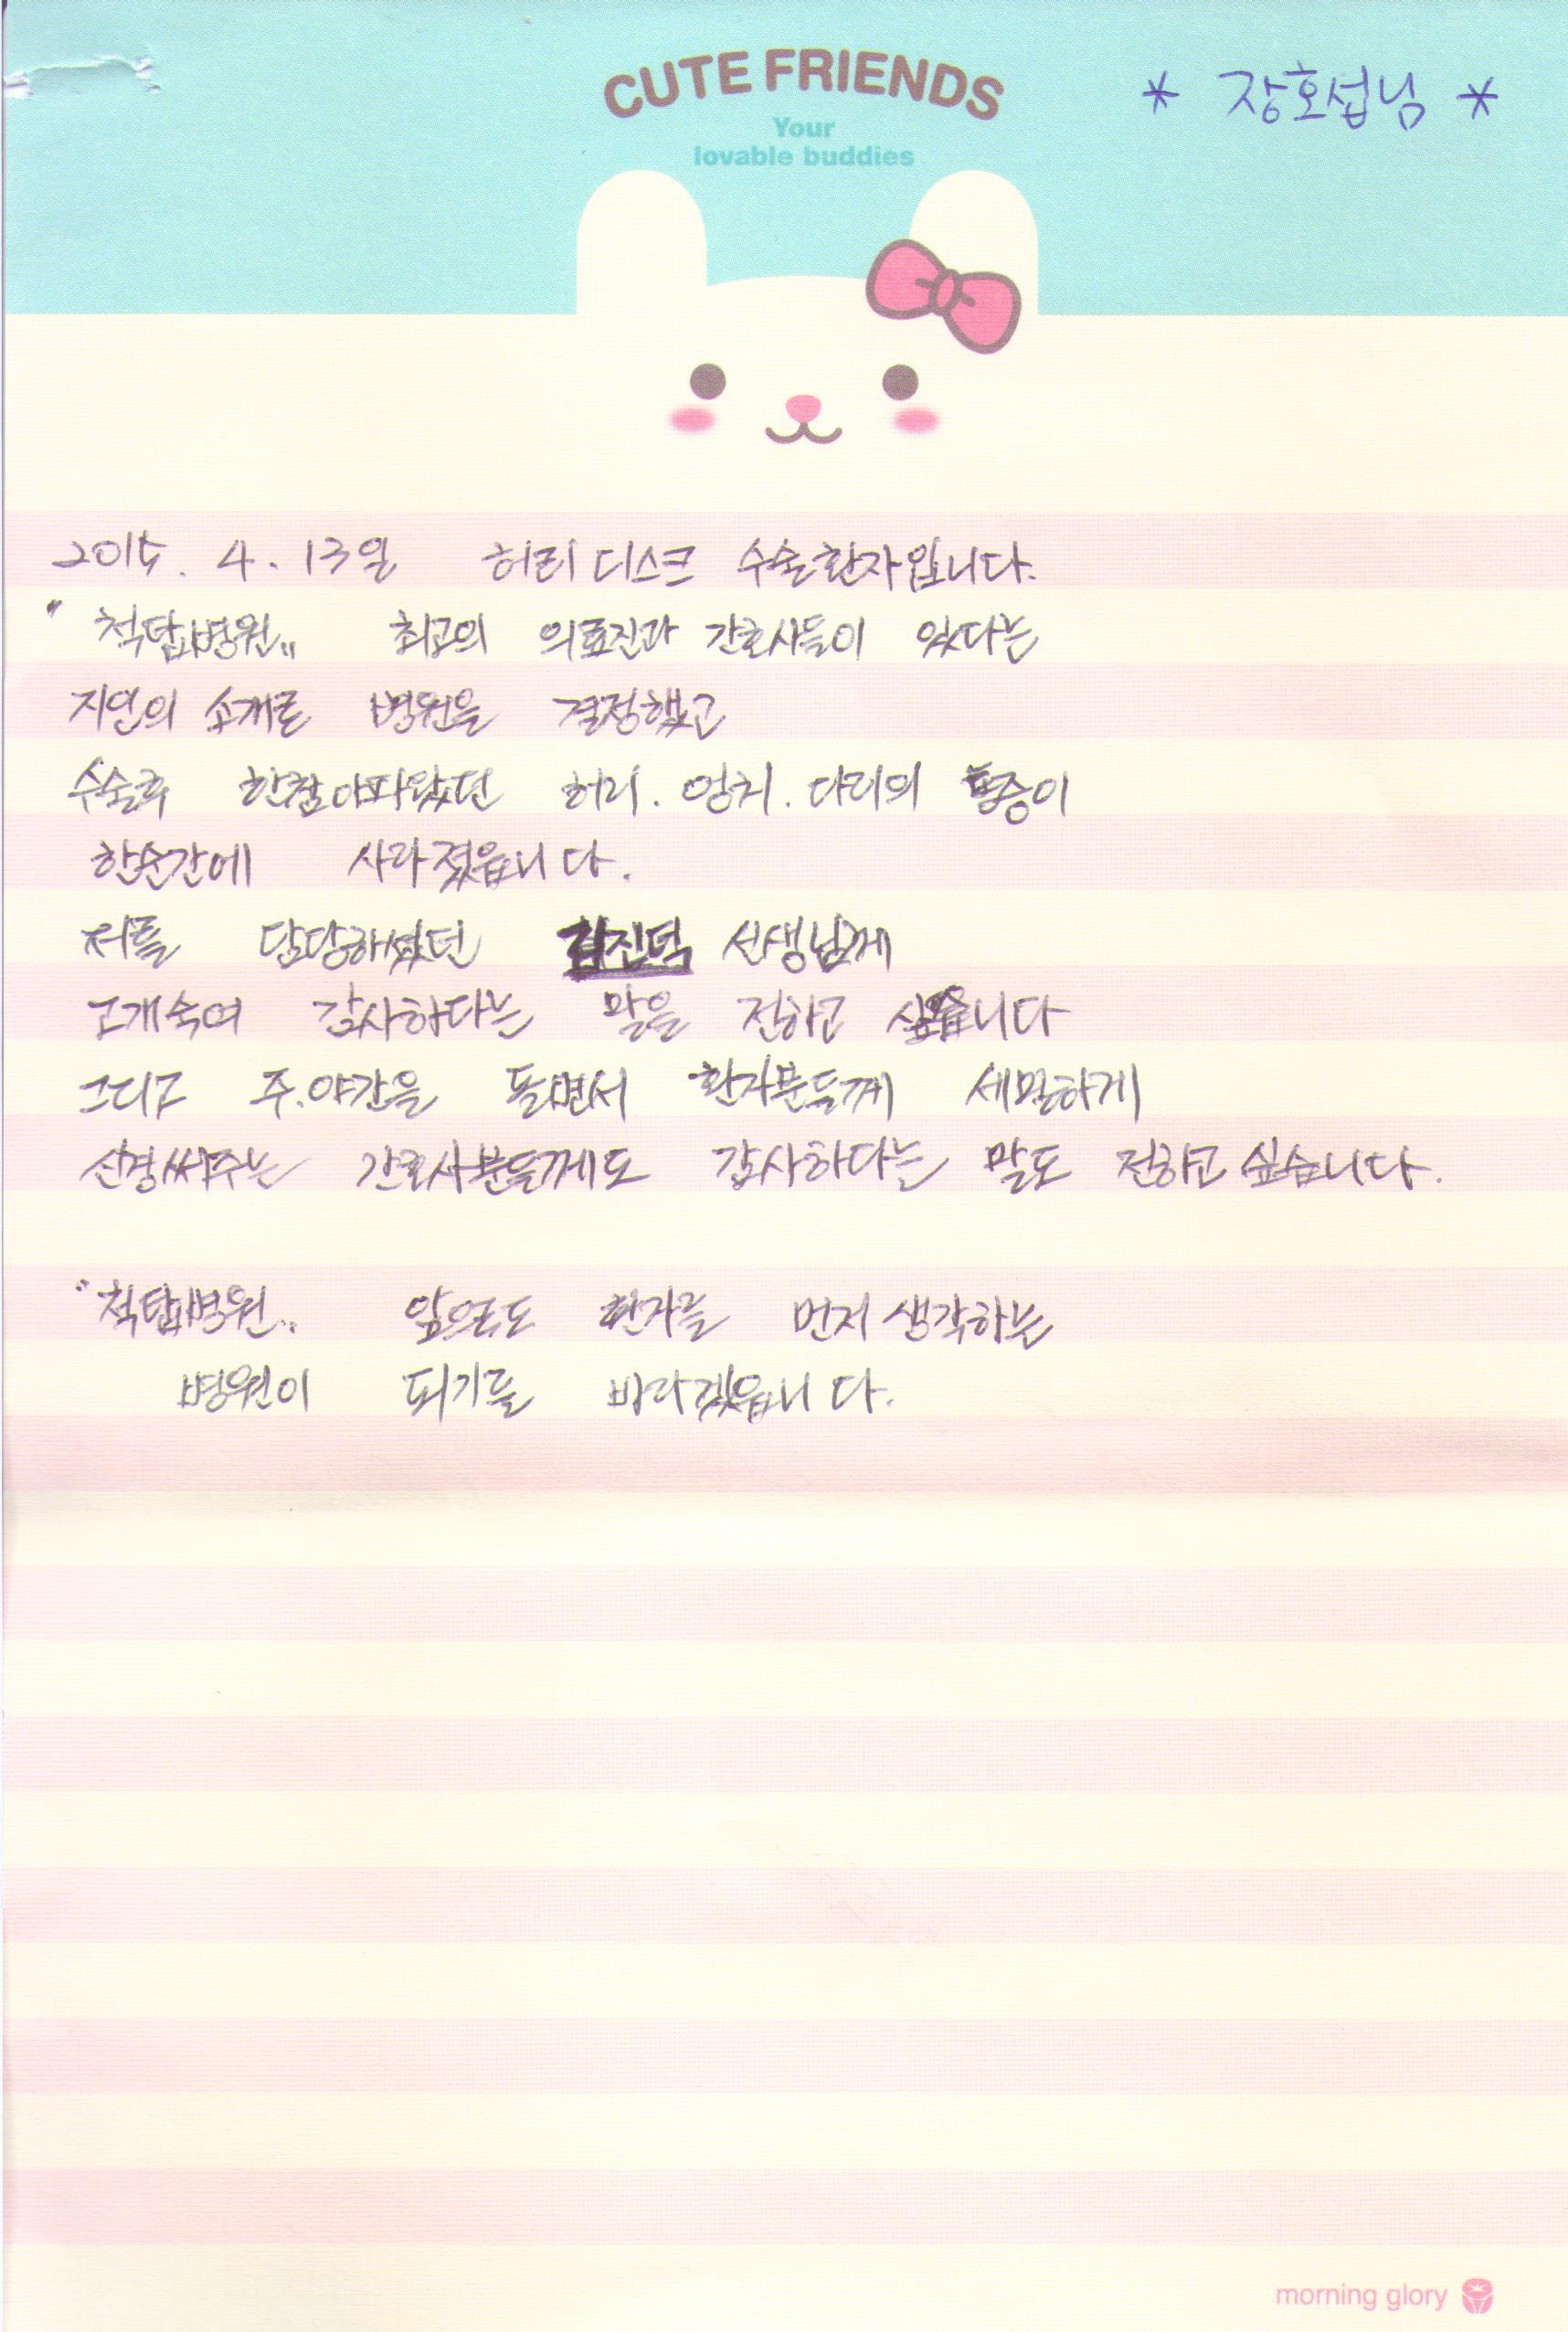 CUTE FRIENDS
Your
lovable buddies
* 장호섭님 *
2015. 4. 13일 허리 디스크 수술환자입니다.
"척탑병원" 최고의 의료진과 간호사들이 있다는
지인의 소개로 병원을 결정했고
수술후 한참아파왔던 허리. 엉치. 다리의 통증이
한순간에 사라졌읍니다.
저를 담당하셨던 김진덕 선생님께
고개숙여 감사하다는 말을 전하고 싶습니다
그리고 주.야간을 돌면서 환자분들께 세밀하게
신경써주는 간호사분들께도 감사하다는 말도 전하고 싶습니다.
"척탑병원" 앞으로도 환자를 먼저 생각하는
병원이 되기를 바라겠읍니다.
morning glory